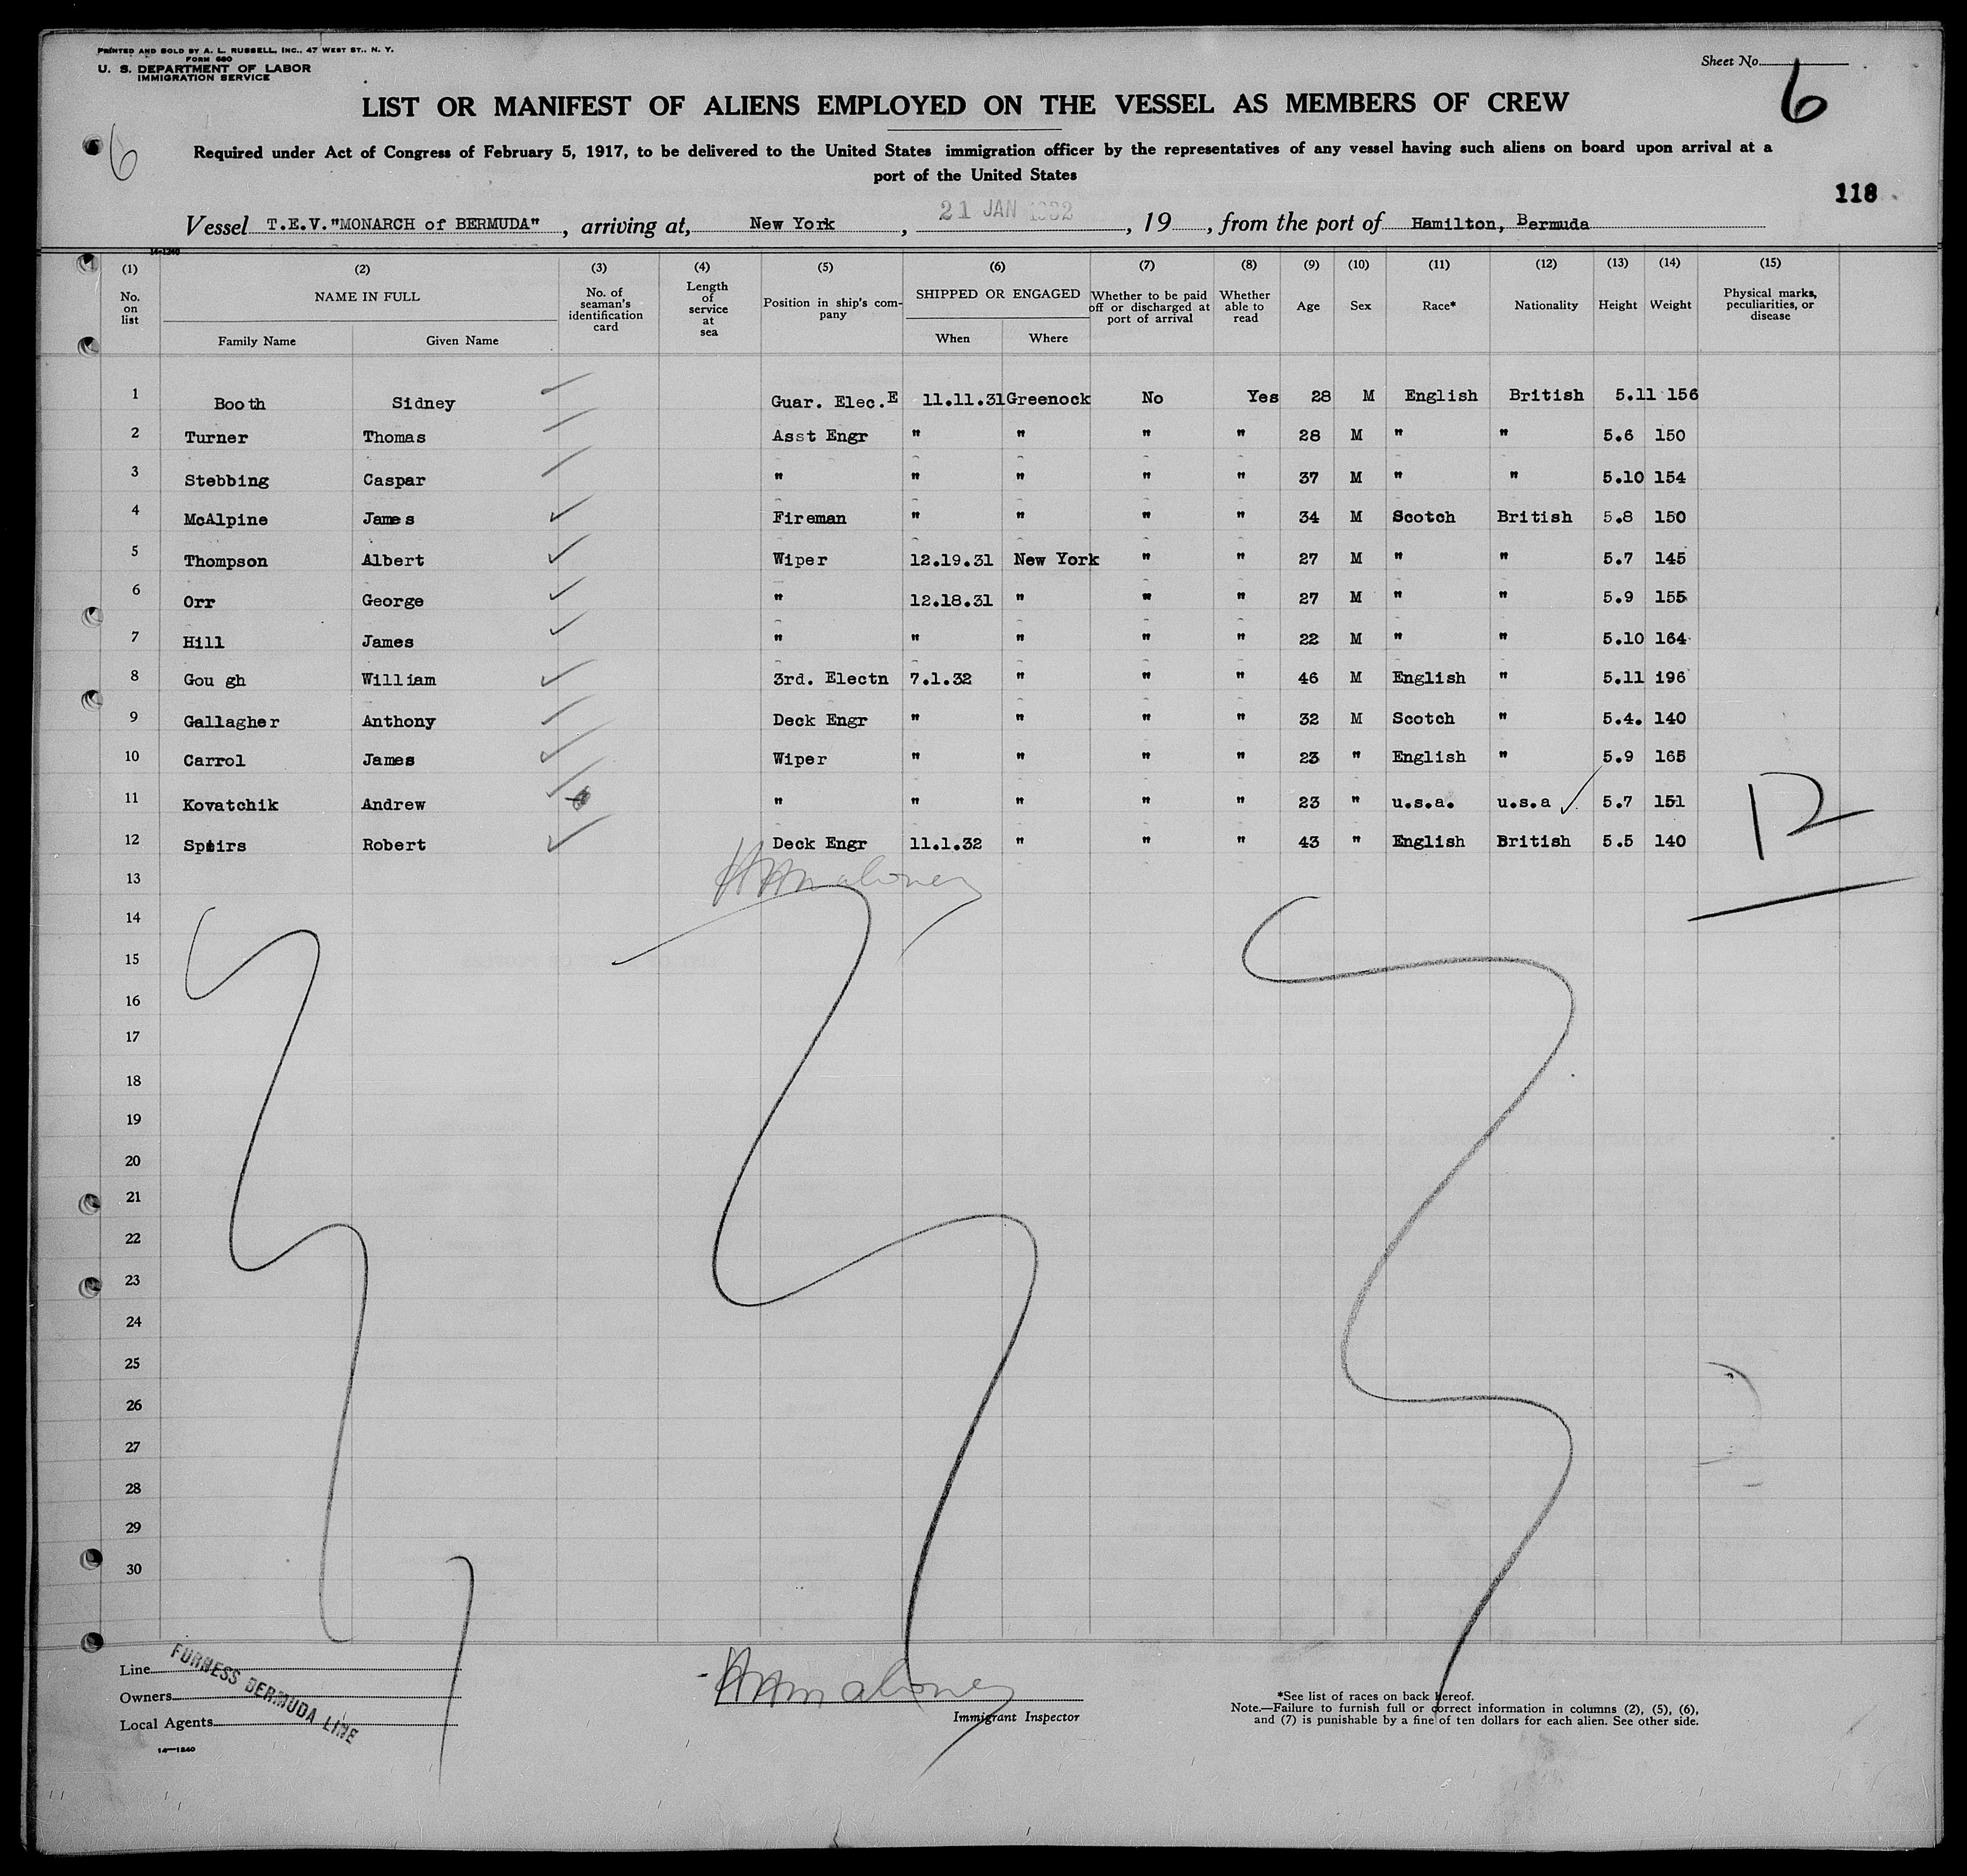 PRINTED AND SOLD BY A. L. RUSSELL, INC., 47 WEST ST., N. Y.
FORM 680
U. S. DEPARTMENT OF LABOR
IMMIGRATION SERVICE
Sheet No. 6
LIST OR MANIFEST OF ALIENS EMPLOYED ON THE VESSEL AS MEMBERS OF CREW
6
Required under Act of Congress of February 5, 1917, to be delivered to the United States immigration officer by the representatives of any vessel having such aliens on board upon arrival at a
port of the United States
118
Vessel T.E.V. "MONARCH of BERMUDA" , arriving at, New York , 21 JAN 1932 , 19 , from the port of Hamilton, Bermuda
14-1240
(1) (2) (3) (4) (5) (6) (7) (8) (9) (10) (11) (12) (13) (14) (15)
No. on list
NAME IN FULL
Family Name Given Name
No. of seaman's identification card
Length of service at sea
Position in ship's company
SHIPPED OR ENGAGED
When Where
Whether to be paid off or discharged at port of arrival
Whether able to read
Age Sex Race* Nationality Height Weight
Physical marks, peculiarities, or disease
1 Booth Sidney Guar. Elec.E 11.11.31 Greenock No Yes 28 M English British 5.11 156
2 Turner Thomas Asst Engr " " " " 28 M " " 5.6 150
3 Stebbing Caspar " " " " " 37 M " " 5.10 154
4 McAlpine James Fireman " " " " 34 M Scotch British 5.8 150
5 Thompson Albert Wiper 12.19.31 New York " " 27 M " " 5.7 145
6 Orr George " 12.18.31 " " " 27 M " " 5.9 155
7 Hill James " " " " " 22 M " " 5.10 164
8 Gou gh William 3rd. Electn 7.1.32 " " " 46 M English " 5.11 196
9 Gallagher Anthony Deck Engr " " " " 32 M Scotch " 5.4. 140
10 Carrol James Wiper " " " " 23 " English " 5.9 165
11 Kovatchik Andrew " " " " " 23 " u.s.a. u.s.a 5.7 151
12 Speirs Robert Deck Engr 11.1.32 " " " 43 " English British 5.5 140
12
13
14
15
16
17
18
19
20
21
22
23
24
25
26
27
28
29
30
Line
Owners
Local Agents
FURNESS BERMUDA LINE
14-1240
Immigrant Inspector
*See list of races on back hereof.
Note.—Failure to furnish full or correct information in columns (2), (5), (6),
and (7) is punishable by a fine of ten dollars for each alien. See other side.